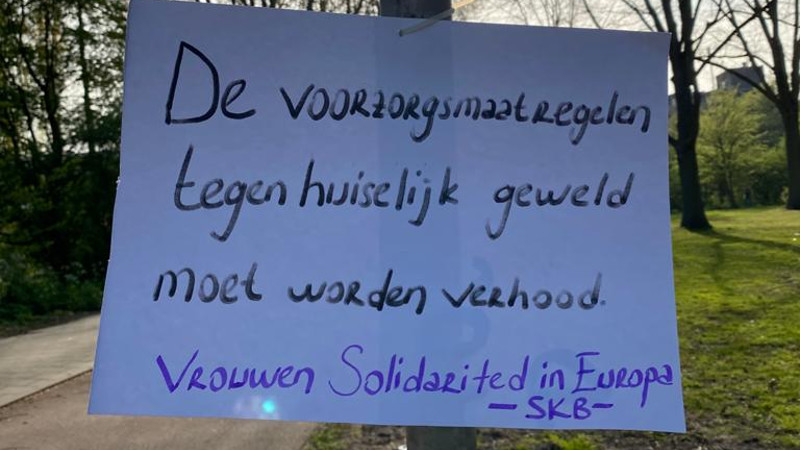 De voorzorgsmaatregelen
tegen huiselijk geweld
moet worden verhood.
Vrouwen Solidarited in Europa
- SKB -